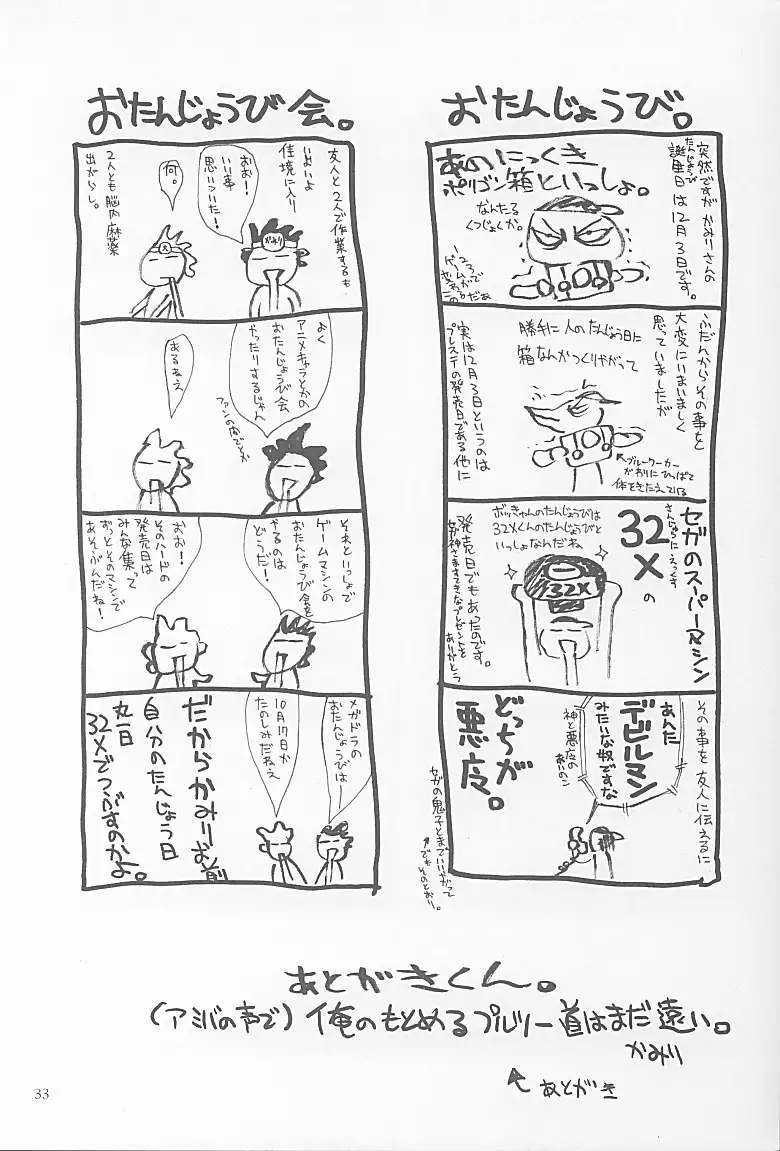 おたんじょうび。
突然ですが かみりさんの
誕生日は12月3日です。
たんじょうび
あのにっくき
ポリゴン箱といっしょ。
なんたる
くつじょくか。
ふだんからその事を
大変にいまいましく
思っていましたが
勝手に人のたんじょう日に
箱なんかつくりやがって
↖ブルーワーカー
がわりにひっぱって
体をきたえている
実は12月3日というのは
プレステの発売日である他に
セガのスーパーマシン
さんじゅうにえっくす
32Xの
ボッきゅんのたんじょうびは
32Xくんのたんじょうびと
いっしょなんだね
32X
発売日でもあったのです。
女神さますてきなプレゼントを
ありがとう
その事を友人に伝えるに
あんた
デビルマン
みたいな奴ですな
神と悪魔の
あいのこ
どっちが
悪魔。
セガの鬼子とまでいいやがって
↑でもそのとおり。
おたんじょうび会。
友人と2人で作業するも
いよいよ
佳境に入り
おお!
いい事
思いついた!
かみり
何。
2人とも脳内麻薬
出がらし。
よく
アニメキャラとかの
おたんじょうび会
やったりするじゃん
ファンの内でとか
あるねえ
それといっしょで
ゲームマシンの
おたんじょうび会を
やるのは
どうだ!
おお!
そのハードの
発売日は
みんな集って
ずっとそのマシンで
あそぶんだね!
メガドラの
おたんじょうびは
10月29日か
たのしみだねえ
だからかみりお前
自分のたんじょう日
丸一日
32Xでつぶすのかよ。
あとがきくん。
(アミバの声で) 俺のもとめるプルツー道はまだ遠い。
かみり
↖ あとがき
33